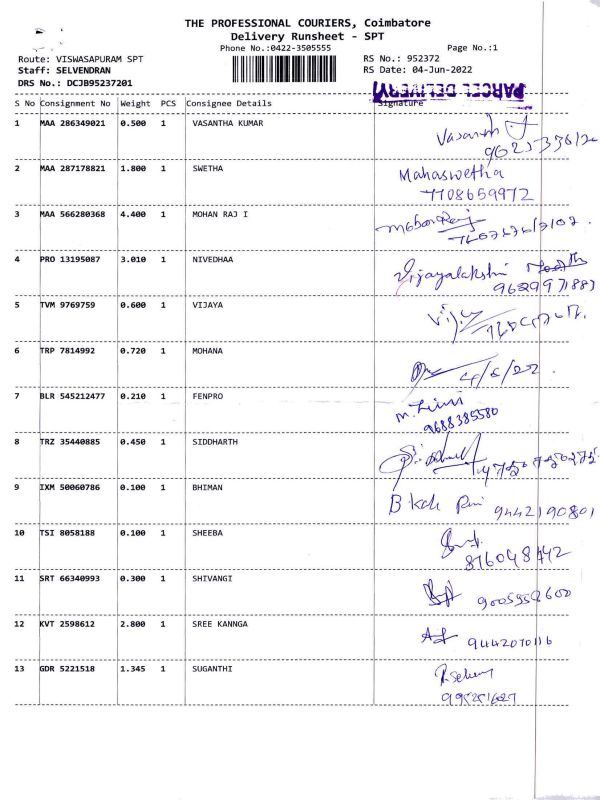 THE PROFESSIONAL COURIERS, Coimbatore
Delivery Runsheet - SPT
Phone No.:0422-3505555 Page No.:1
Route: VISWASAPURAM SPT RS No.: 952372
Staff: SELVENDRAN RS Date: 04-Jun-2022
DRS No.: DCJB95237201
PARCEL DELIVERY
S No Consignment No Weight PCS Consignee Details Signature
1 MAA 286349021 0.500 1 VASANTHA KUMAR
2 MAA 287178821 1.800 1 SWETHA Mahaswetha
7708659972
3 MAA 566280368 4.400 1 MOHAN RAJ I
4 PRO 13195087 3.010 1 NIVEDHAA Vijayalakshmi
5 TVM 9769759 0.600 1 VIJAYA
6 TRP 7814992 0.720 1 MOHANA 4/6/22
7 BLR 545212477 0.210 1 FENPRO
9688385580
8 TRZ 35440885 0.450 1 SIDDHARTH
9 IXM 50060786 0.100 1 BHIMAN 9442190801
10 TSI 8058188 0.100 1 SHEEBA
11 SRT 66340993 0.300 1 SHIVANGI
12 KVT 2598612 2.800 1 SREE KANNGA
9442070116
13 GDR 5221518 1.345 1 SUGANTHI